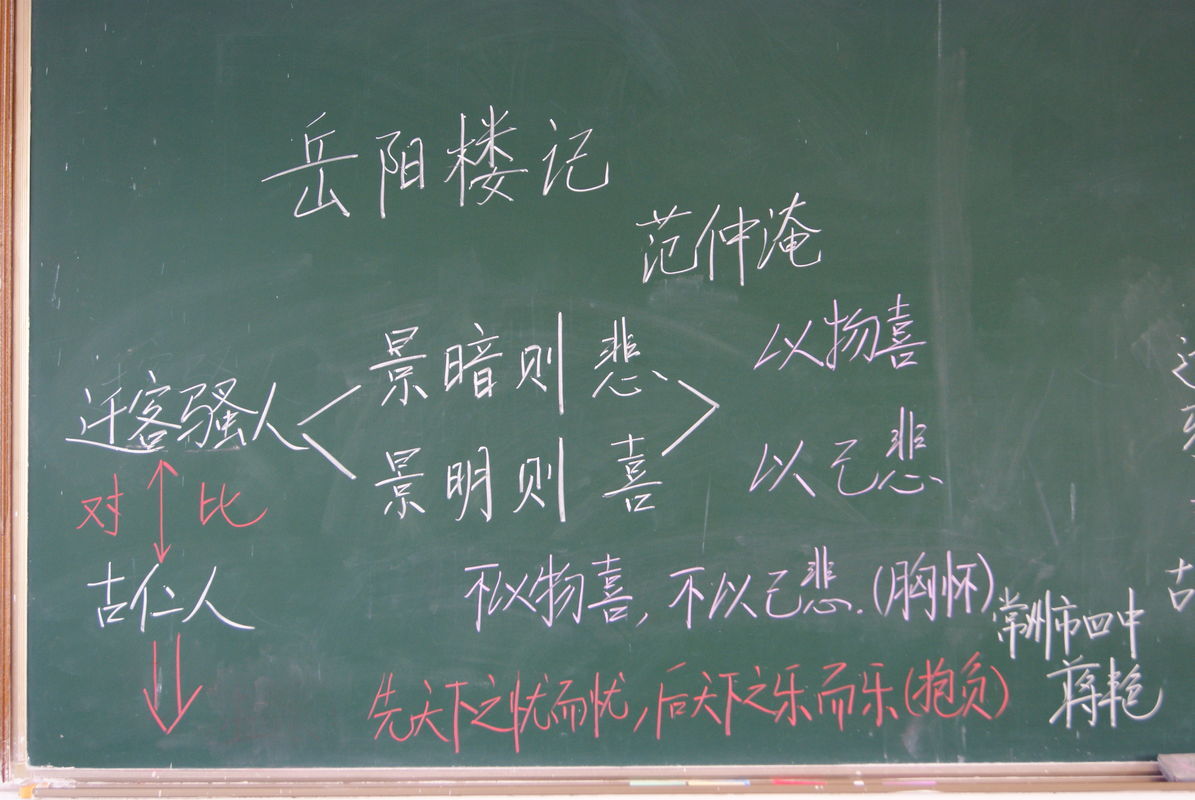 岳阳楼记
范仲淹
景暗则悲
以物喜
迁客骚人
景明则喜
以己悲
对比
古仁人
不以物喜，不以己悲.(胸怀)
常州市四中
先天下之忧而忧，后天下之乐而乐(抱负)
蒋艳
古